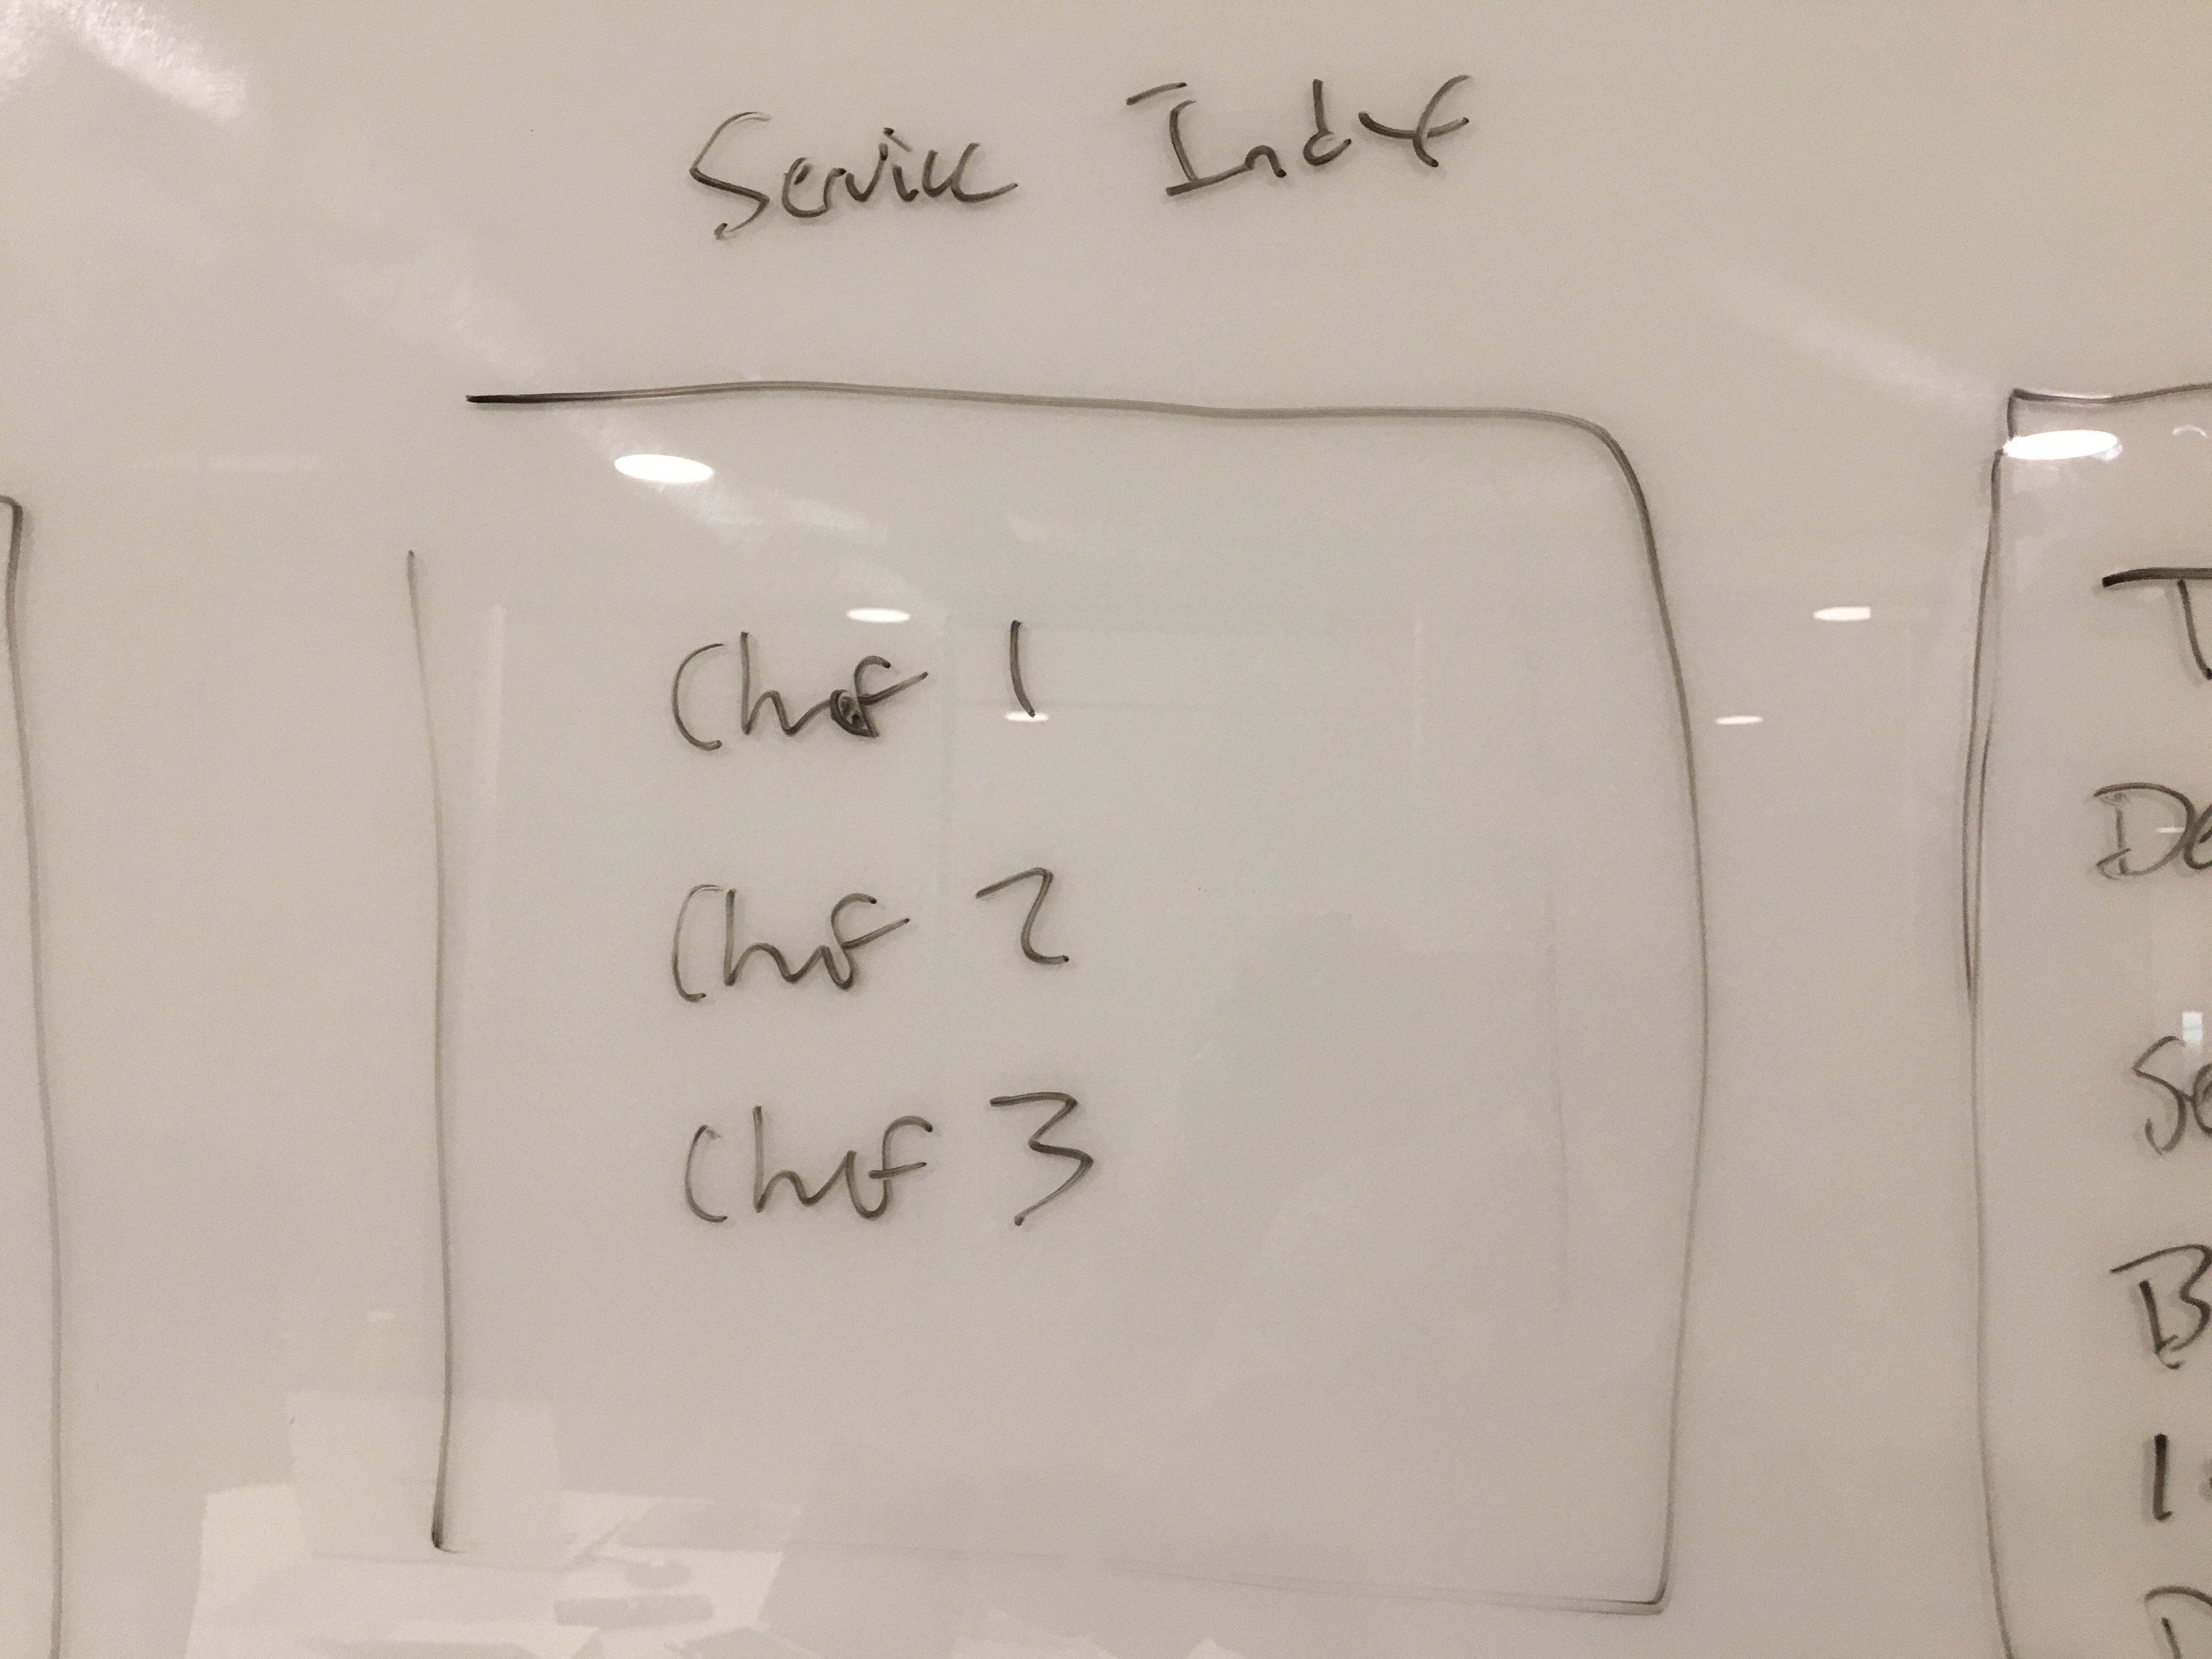 Service Index
Chef 1
Chef 2
Chef 3
T
De
Se
B
1